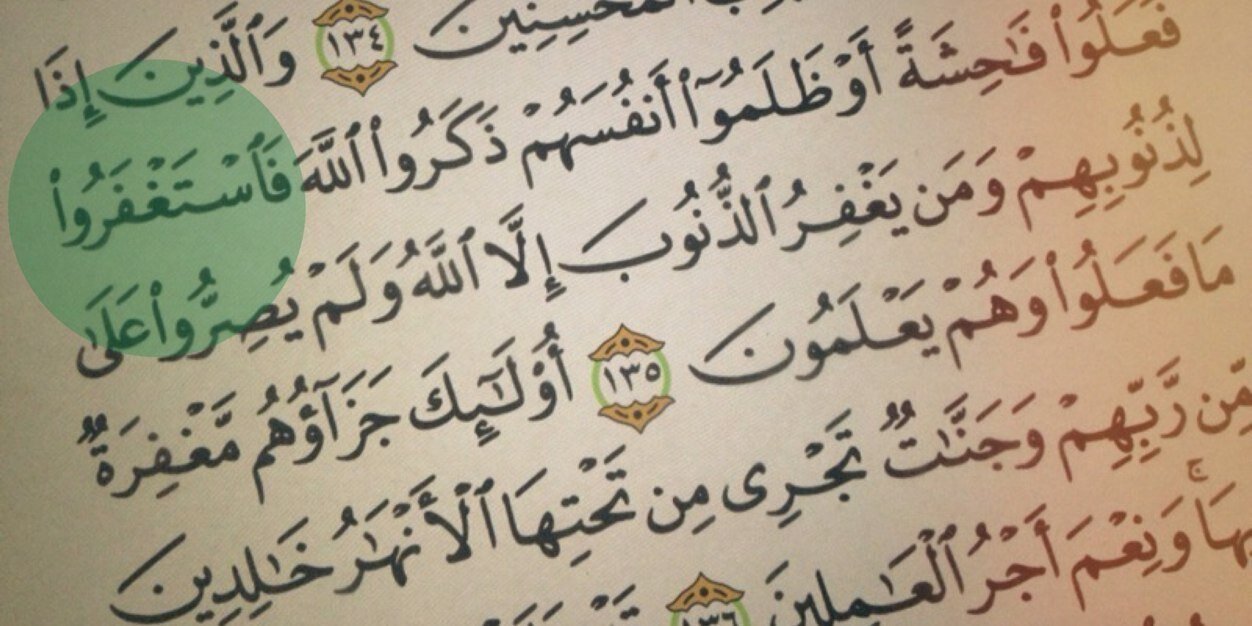 ٱلْمُحْسِنِينَ ١٣٤ وَٱلَّذِينَ إِذَا
فَعَلُوا۟ فَـٰحِشَةً أَوْ ظَلَمُوٓا۟ أَنفُسَهُمْ ذَكَرُوا۟ ٱللَّهَ فَٱسْتَغْفَرُوا۟
لِذُنُوبِهِمْ وَمَن يَغْفِرُ ٱلذُّنُوبَ إِلَّا ٱللَّهُ وَلَمْ يُصِرُّوا۟ عَلَىٰ
مَا فَعَلُوا۟ وَهُمْ يَعْلَمُونَ ١٣٥ أُو۟لَـٰٓئِكَ جَزَآؤُهُم مَّغْفِرَةٌ
مِّن رَّبِّهِمْ وَجَنَّـٰتٌ تَجْرِى مِن تَحْتِهَا ٱلْأَنْهَـٰرُ خَـٰلِدِينَ
وَنِعْمَ أَجْرُ ٱلْعَـٰمِلِينَ ١٣٦